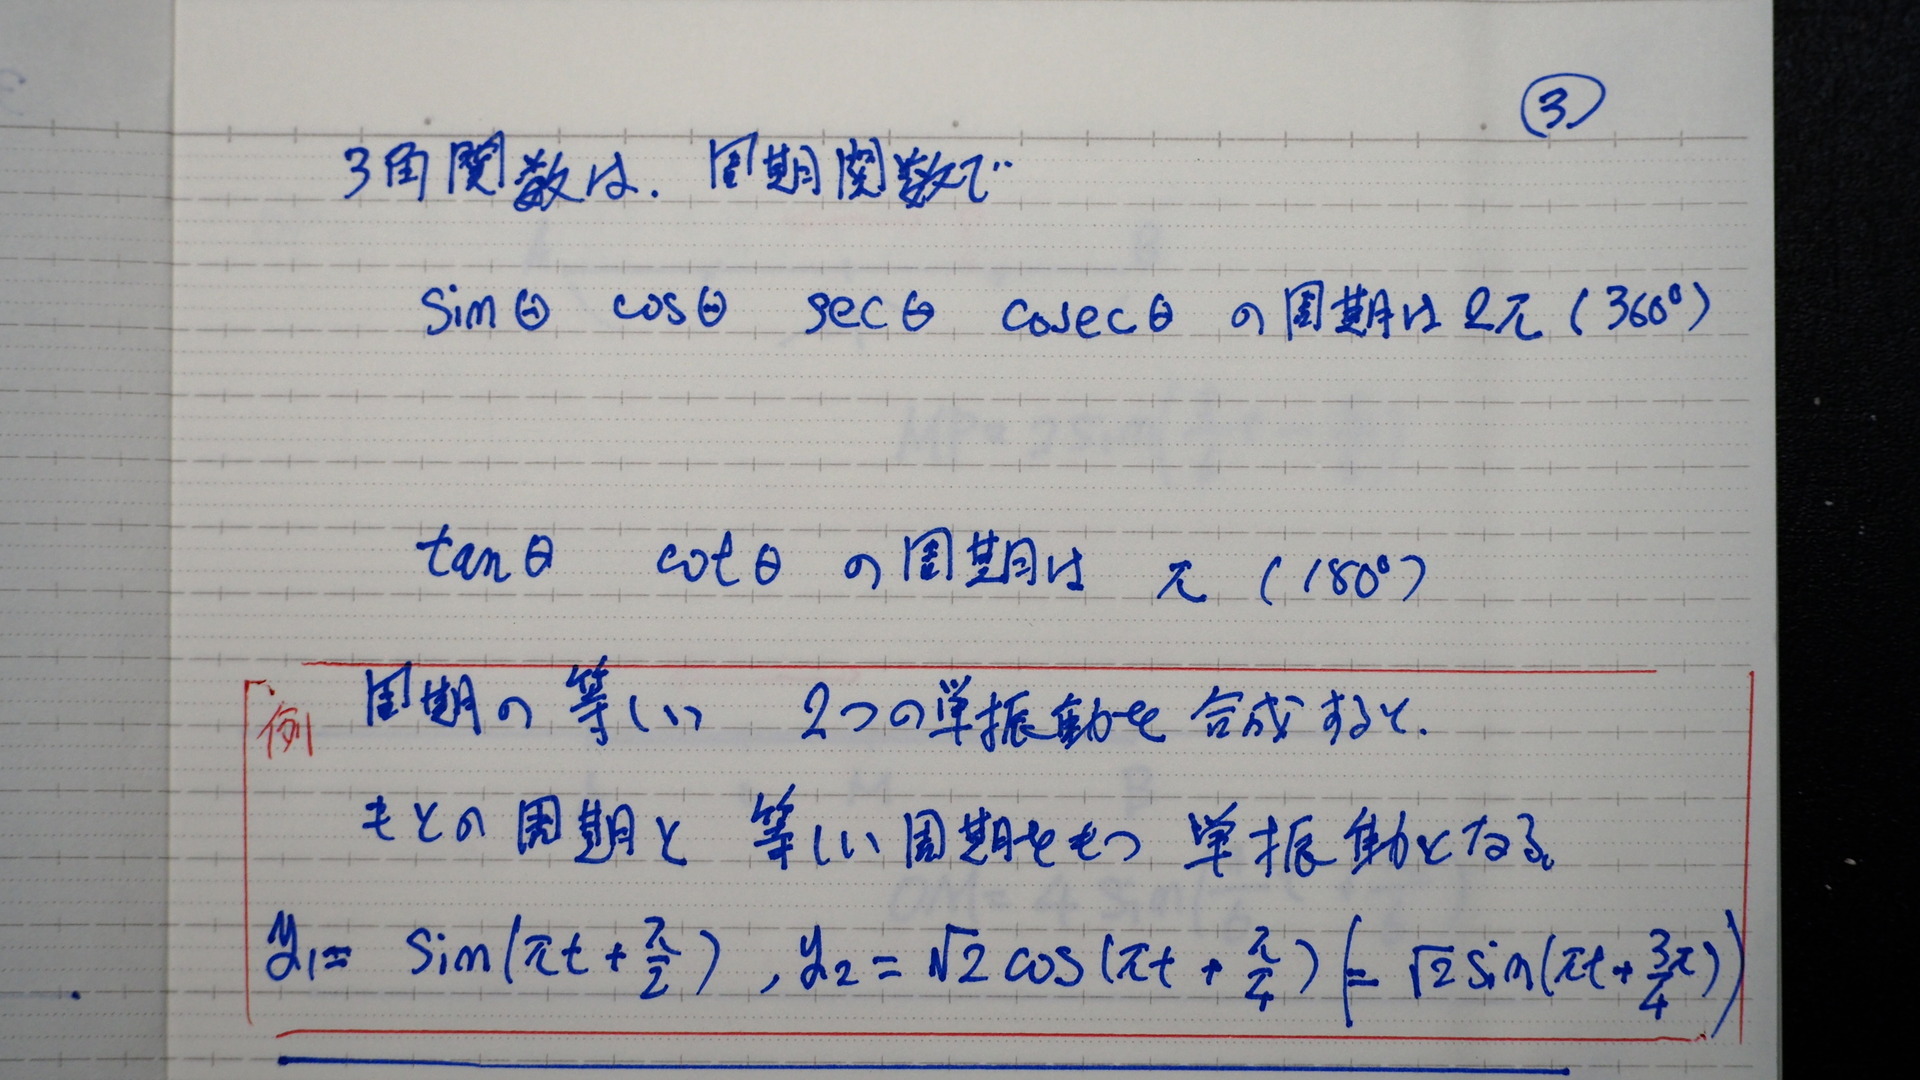 ③
3角関数は、周期関数で
sinθ cosθ secθ cosecθ の周期は 2π (360°)
tanθ cotθ の周期は π (180°)
例 周期の等しい 2つの単振動を合成すると、
もとの周期と等しい周期をもつ単振動となる。
y₁= sin(πt + π/2), y₂ = √2 cos(πt + π/4) (= √2 sin(πt + 3/4π))